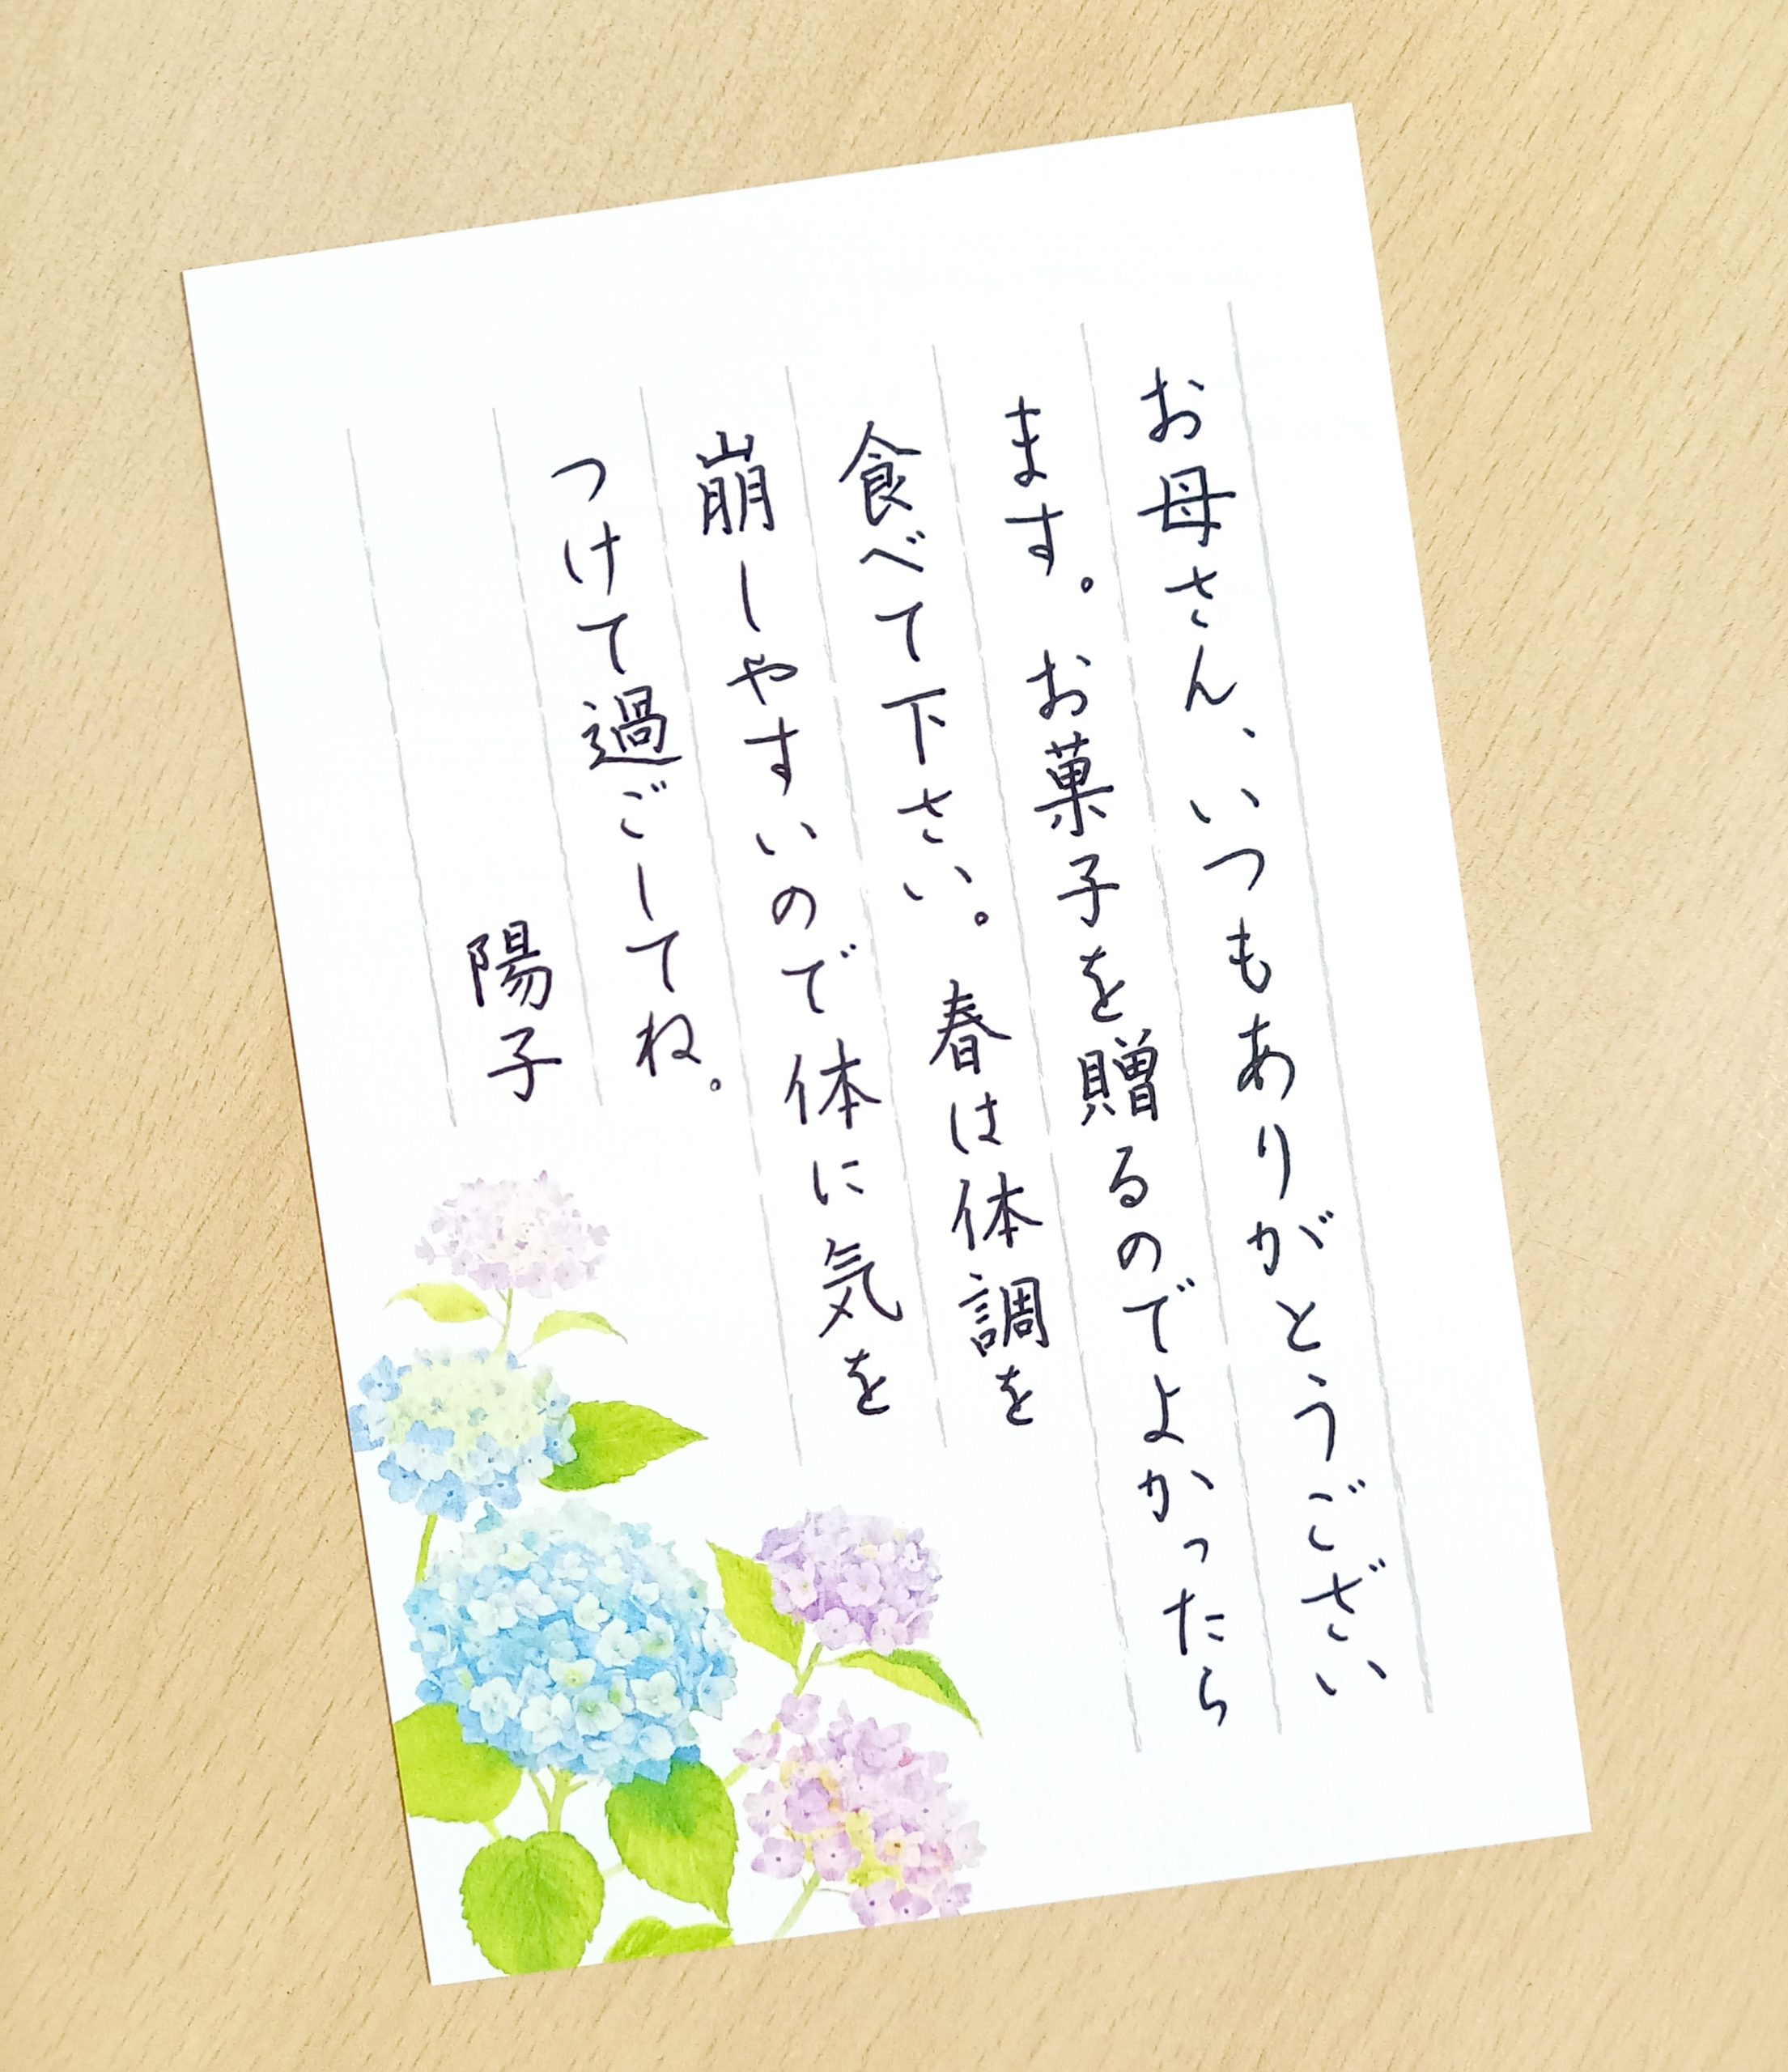 お母さん、いつもありがとうござい
ます。お菓子を贈るのでよかったら
食べて下さい。春は体調を
崩しやすいので体に気を
つけて過ごしてね。
陽子